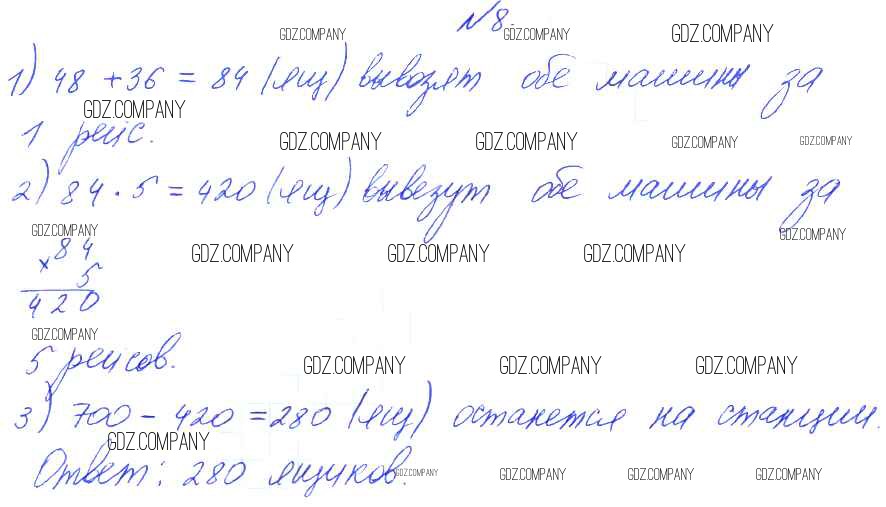 №8.
GDZ.COMPANY GDZ.COMPANY GDZ.COMPANY
1) 48 + 36 = 84 (ящ) вывозят обе машины за
GDZ.COMPANY
1 рейс.
GDZ.COMPANY GDZ.COMPANY GDZ.COMPANY GDZ.COMPANY
2) 84 · 5 = 420 (ящ) вывезут обе машины за
GDZ.COMPANY GDZ.COMPANY
× 84
GDZ.COMPANY GDZ.COMPANY GDZ.COMPANY
5
420
GDZ.COMPANY
5 рейсов.
GDZ.COMPANY GDZ.COMPANY GDZ.COMPANY
3) 700 - 420 = 280 (ящ) останется на станции.
GDZ.COMPANY
Ответ: 280 ящиков.
GDZ.COMPANY GDZ.COMPANY GDZ.COMPANY GDZ.COMPANY